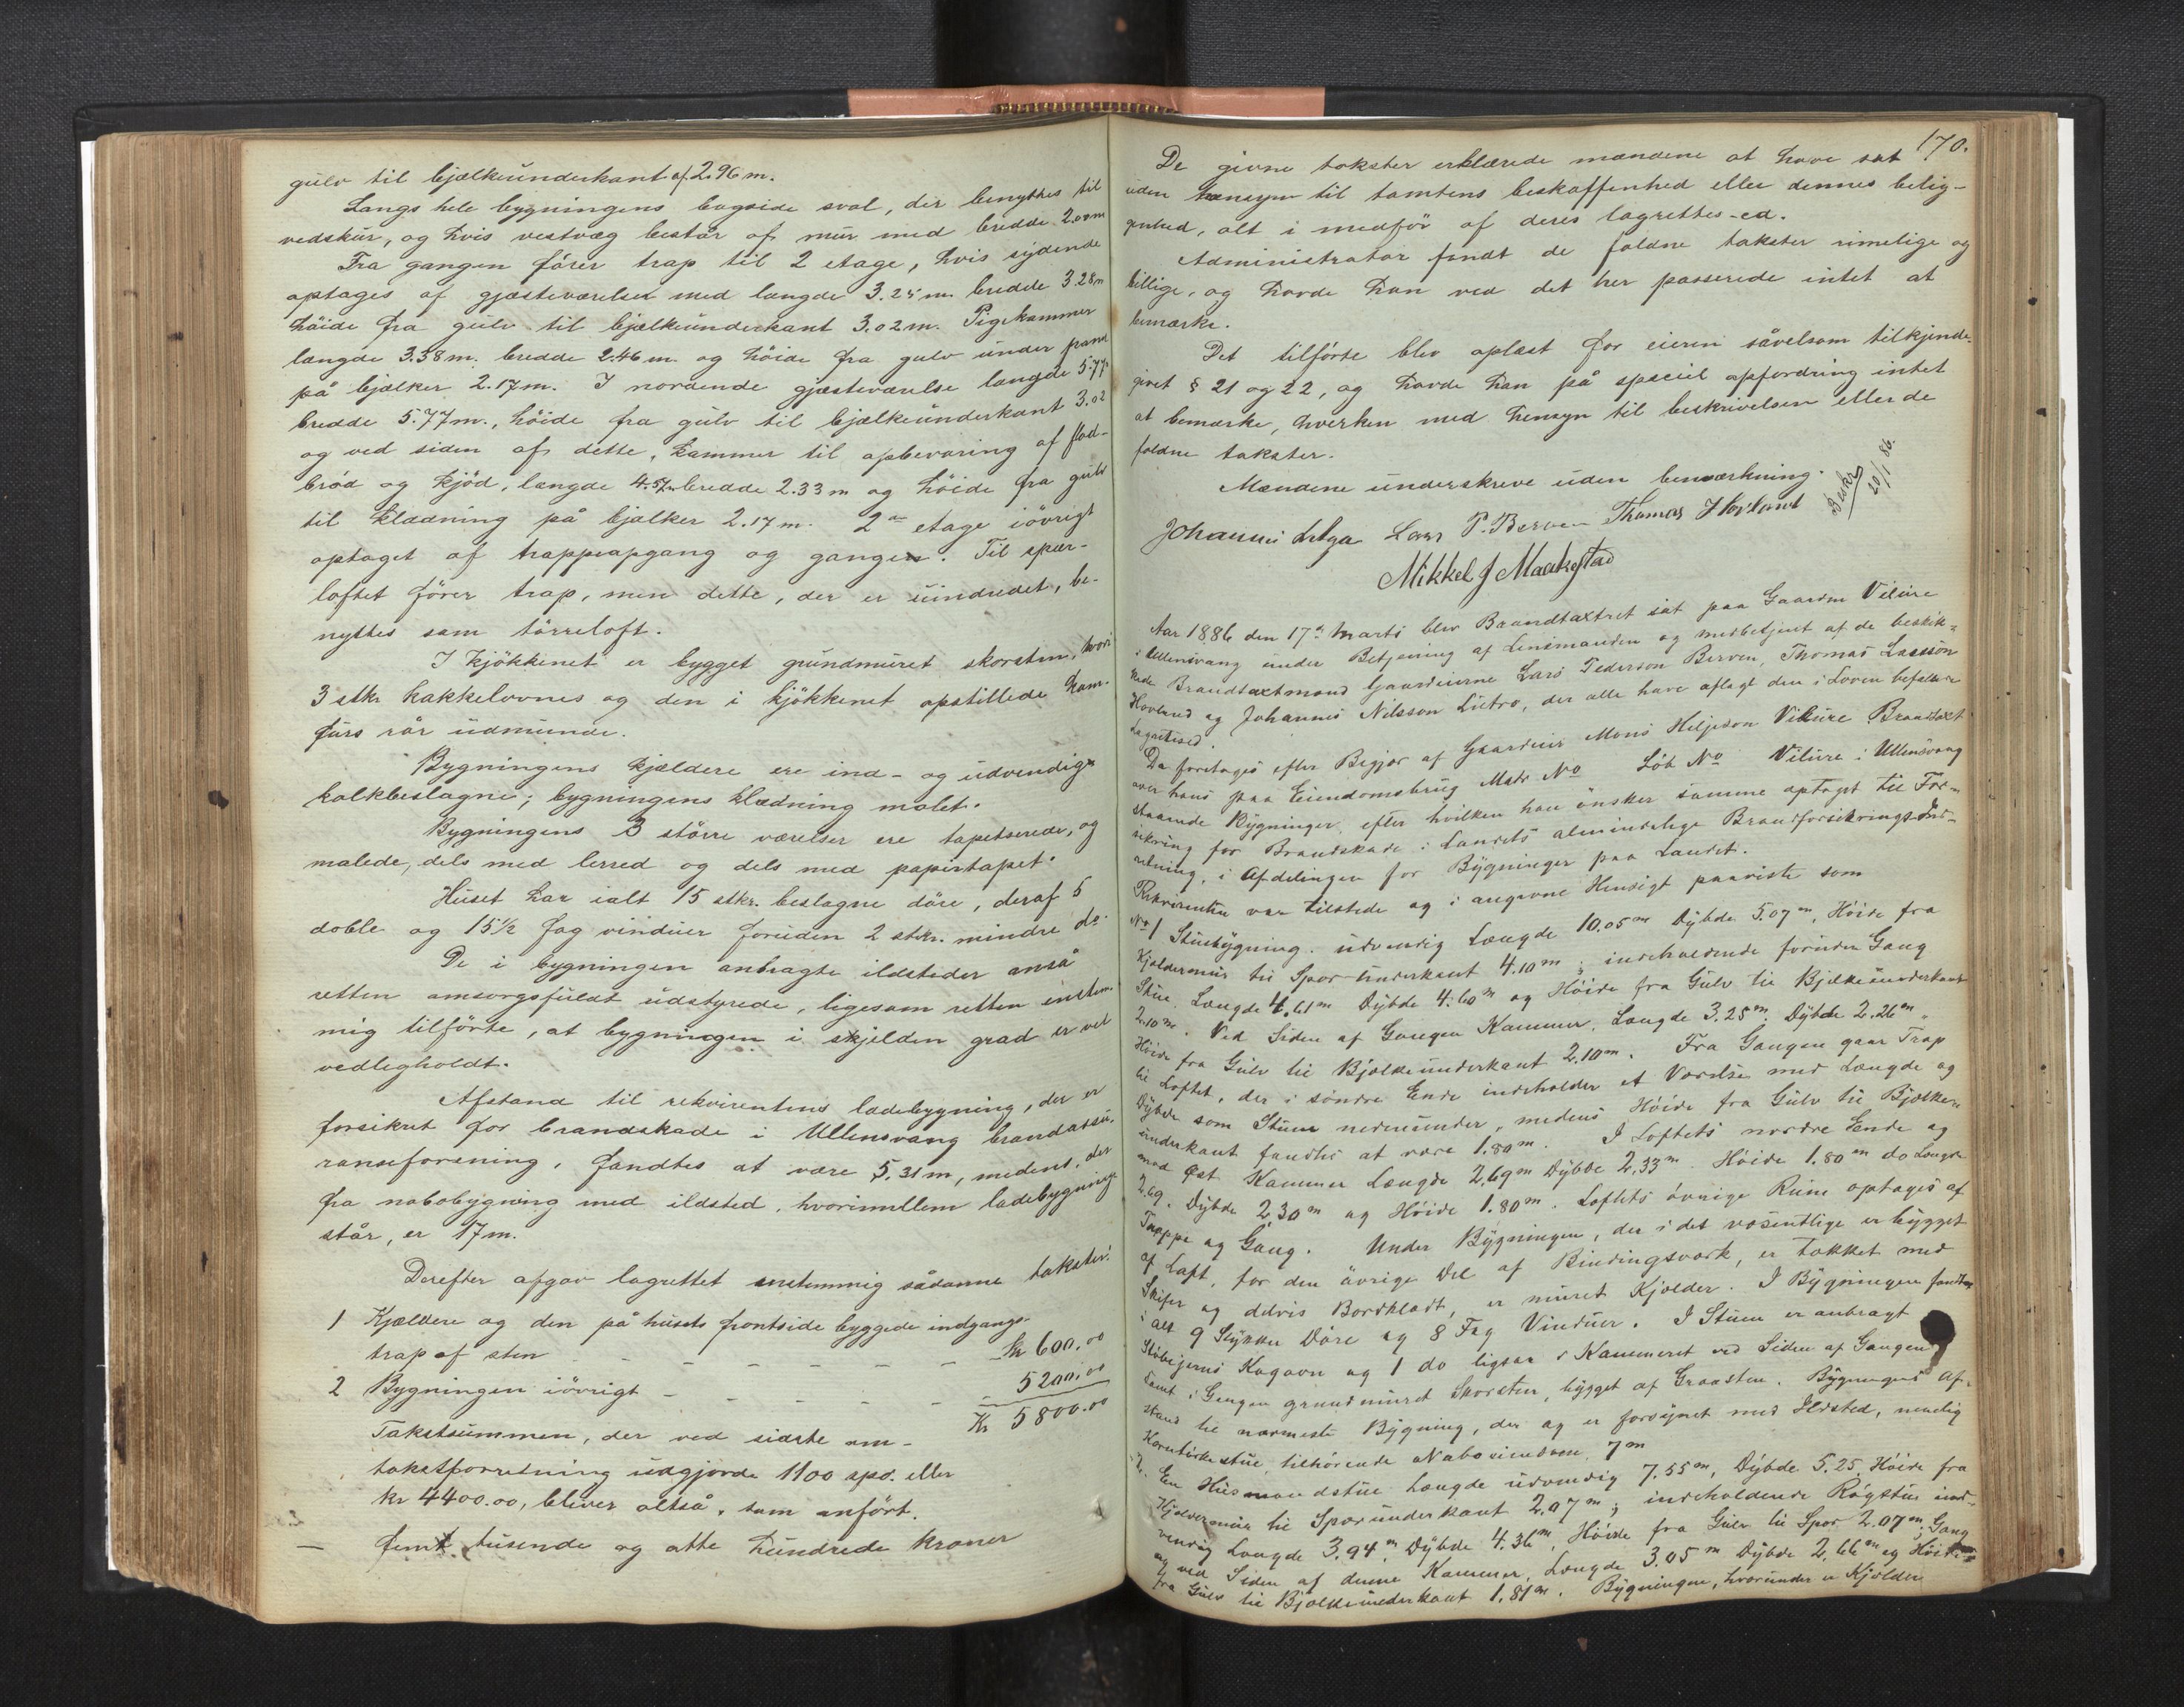 gulv til bjælkeunderkant af 2.96 m.
Langs hele bygningens bagside sval, der benyttes til
vedskur, og hvis vestvæg består af mur med bredde 2.00m
Fra gangen fører trap til 2 etage, hvis sydende
optages af gjæsteværelser med længde 3.25 m. bredde 3.28m
høide fra gulv til bjælkeunderkant 3.02 m. Pigekammer
længde 3.38 m. bredde 2.46 m og høide fra gulv under panel
på bjælker 2.17 m. I nordende gjæsteværelse længde 5.77
bredde 5.77 m., høide fra gulv til bjælkeunderkant 3.02
og ved siden af dette, kammer til opbevaring af flad-
brød og kjød, længde 4.57m bredde 2.33 m og høide fra gulv
til klædning på bjælker 2.17 m. 2en etage iøvrigt
optaget af trappeopgang og gangen. Til spær-
loftet fører trap, men dette, der er uindredet, be-
nyttes som tørreloft.
I kjøkkenet er bygget grundmuret skorsten, hvori
3 stkr kakkelovnes og den i kjøkkenet opstillede kom-
furs rør udmunde.
Bygningens kjældere ere ind- og udvendige
kalkbeslagne; bygningens klædning malet.
Bygningens 3 større værelser ere tapetserede, og
malede, dels med lerred og dels med papirtapet.
Huset har ialt 15 stkr. beslagne døre, deraf 5
doble og 15½ fag vinduer foruden 2 stkr. mindre do
De i bygningen anbragte ildsteder anså
retten omsorgsfuldt udstyrede, ligesom retten enstem-
mig tilførte, at bygningen i skjelden grad er vel
vedligholdt.
Afstand til rekvirentens ladebygning, der er
forsikret for brandskade i Ullensvang brandassu-
ranseforening, fandtes at være 5.31 m, medens, den
fra nabobygning med ildsted, hvorimellem ladebygningen
står, er 17 m.
Derefter afgav lagrettet enstemmig sådanne takster:
1 Kjældere og den på husets frontside byggede indgangs-
trap af sten - - - - - - - Kr 600.00
2 Bygningen iøvrigt - - - - - - 5200.00
Kr 5800.00
Takstsummen, der ved sidste om-
takstforretning udgjorde 1100 spd. eller
kr 4400.00, bliver altså, som anført.
— fem tusende og otte hundrede kroner
170.
De givne takster erklærede mændene at have sat
uden hensyn til tomtens beskaffenhed eller dennes belig-
genhed, alt i medfør af deres lagrettes-ed.
Administrator fandt de faldne takster rimelige og
billige, og havde han ved det her passerede intet at
bemærke.
Det tilførte blev oplæst for eieren såvelsom tilkjende-
givet § 21 og 22, og havde han på speciel opfordring intet
at bemærke, hverken med hensyn til beskrivelsen eller de
faldne takster.
Mændene underskreve uden bemærkning.
Beskr 20/1 86.
Johannis Lutro Lars P. Berven Thomas Hovland
Mikkel J Maakestad
Aar 1886 den 17de Marts blev Brandtaxtret sat paa Gaarden Vikøre
i Ullensvang under Betjening af Lensmanden og medbetjent af de beskik-
kede Brandtaxtmænd Gaardeierne Lars Pederson Berven, Thomas Larsson
Hovland og Johannis Nilsson Lutro, der alle have aflagt den i Loven befalede
Lagretesed.
Da foretoges efter Begjær af Gaardeier Mons Heljeson Vikøre Brandtaxt
over hans paa Eiendomsbrug Matr No Løb No Vikøre i Ullensvang
staaende Bygninger, efter hvilken han ønsker samme optaget til For-
sikring for Brandskade i Landets almindelige Brandforsikrings-Ind-
retning, i Afdelingen for Bygninger paa Landet.
Rekvirenten var tilstede og i angivne Hensigt paaviste som
No 1 Stuebygning. udvendig Længde 10.05 m Dybde 5.07 m, Høide fra
Kjældermur til Spær-underkant 4.10 m; indeholdende foruden Gang
Stue, Længde 4.61 m Dybde 4.60 m og Høide fra Gulv til Bjælkeunderkant
2.10 m. Ved Siden af Gangen Kammer, Længde 3.25 m. Dybde 2.26 m,
Høide fra Gulv til Bjælkeunderkant 2.10 m. Fra Gangen gaar Trap
til Loftet, der i søndre Ende indeholder et Værelse med Længde og
Dybde som Stuen nedenunder, medens Høide fra Gulv til Bjælke-
underkant fandtes at være 1.80 m. I Loftets nordre Ende og
mod Øst Kammer Længde 2.69 m Dybde 2.33 m Høide 1.80 m do Længde
2.69. Dybde 2.30 m og Høide 1.80 m. Loftets øvrige Rum optages af
Trappe og Gang. Under Bygningen, der i det væsentlige er bygget
af Laft, for den øvrige Del af Bindingsværk, er takket med
Skifer og delvis Bordklædt, er muret Kjælder. I Bygningen fandtes
i alt 9 Stykker Døre og 8 Fag Vinduer. I Stuen er anbragt
Støbejerns Kogovn og 1 do ligesaa i Kammeret ved Siden af Gangen
samt i Gangen grundmuret Skorsten, bygget af Graasten. Bygningens Af-
stand til nærmeste Bygning, der og er forsynet med Ildsted, nemlig
Korntørkestue tilhørende Naboeiendom 7 m
2. En Husmandstue Længde udvendig 7.55 m, Dybde 5.25, Høide fra
Kjældermur til Spærunderkant 2.97 m; indeholdende Røgstue ind-
vendig Længde 3.94 m, Dybde 4.36 m, Høide fra Gulv til Spær 2.07 m, Gang
og ved Siden af denne Kammer, Længde 3.05 m Dybde 2.66 m og Høide
fra Gulv til Bjælkeunderkant 1.81 m. Bygningen, hvorunder er Kjælder